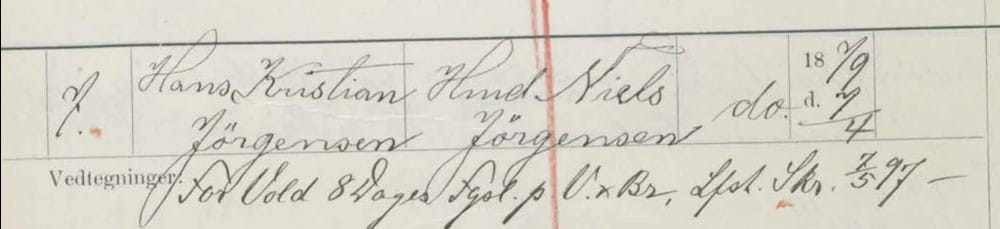 7. Hans Kristian Hmd. Niels 18 79
Jörgensen Jörgensen do. d. 7/4
Vedtegninger: For Vold 8 Dages Fgsl. p. V. & Br, Lfst. Skr. 7/5 97 —